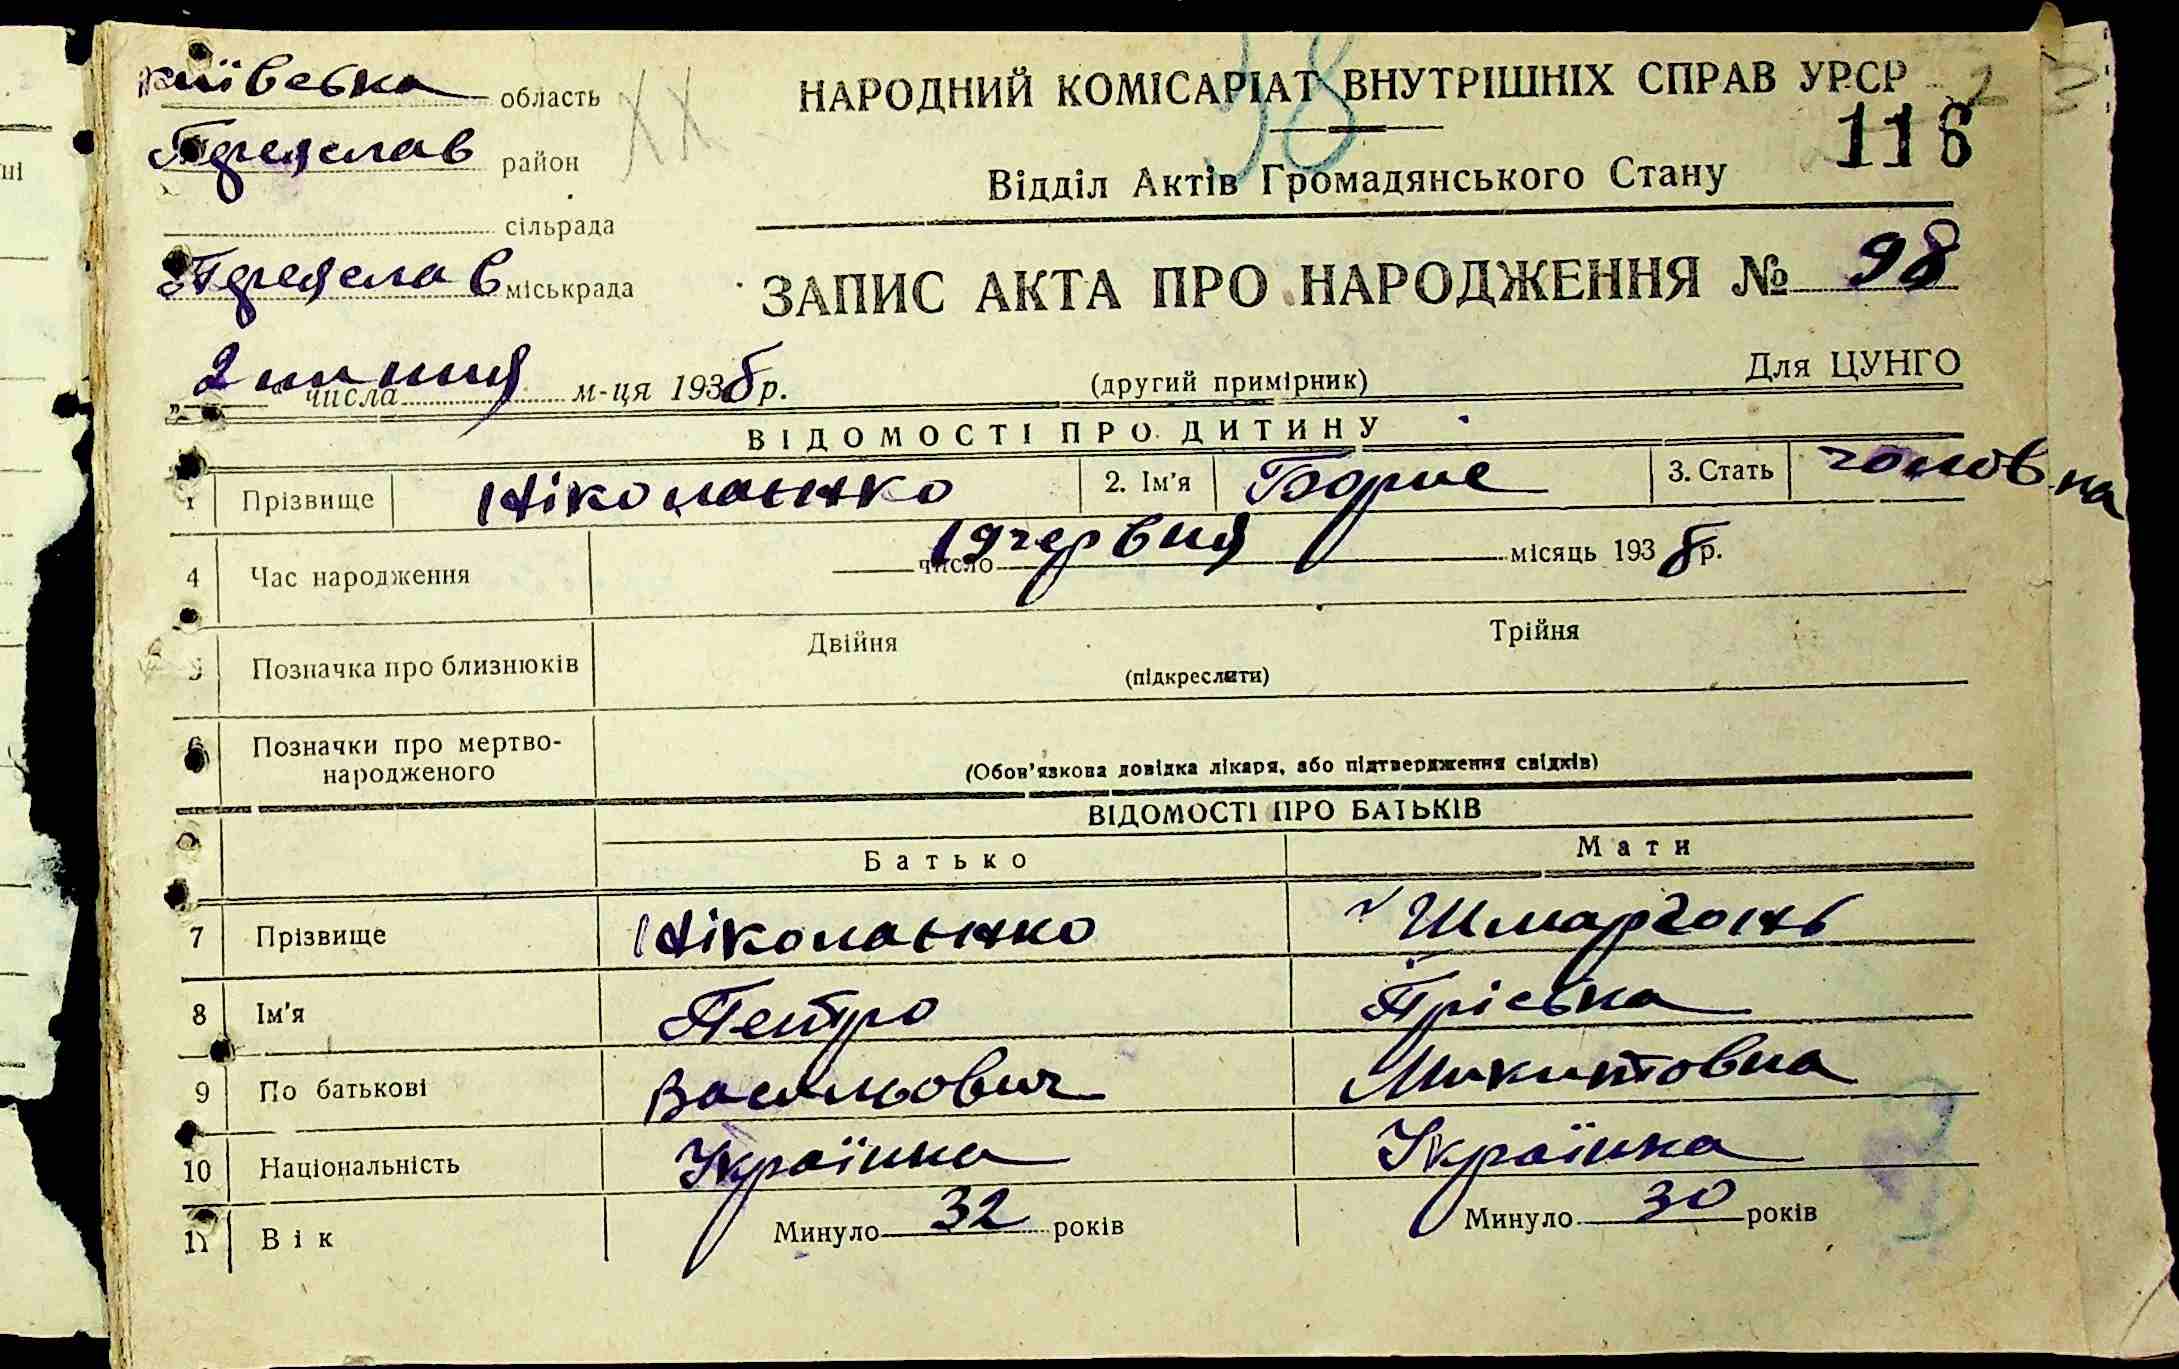 Київська область
38
НАРОДНИЙ КОМІСАРІАТ ВНУТРІШНІХ СПРАВ УРСР
23
116
Переяслав район
Відділ Актів Громадянського Стану
сільрада
Переяслав міськрада
ЗАПИС АКТА ПРО НАРОДЖЕННЯ № 98
„2“ числа липня м-ця 1938 р.
(другий примірник)
Для ЦУНГО
ВІДОМОСТІ ПРО ДИТИНУ
1 Прізвище Ніколаенко 2. Ім'я Борис 3. Стать чоловча
4 Час народження 19 число червня місяць 1938 р.
5 Позначка про близнюків Двійня Трійня
(підкреслити)
6 Позначки про мертво-
народженого
(Обов'язкова довідка лікаря, або підтвердження свідків)
ВІДОМОСТІ ПРО БАТЬКІВ
Батько Мати
7 Прізвище Ніколаенко Шмарголь
8 Ім'я Петро Пріська
9 По батькові Васильович Микитовна
10 Національність Українка Українка
11 Вік Минуло 32 років Минуло 30 років